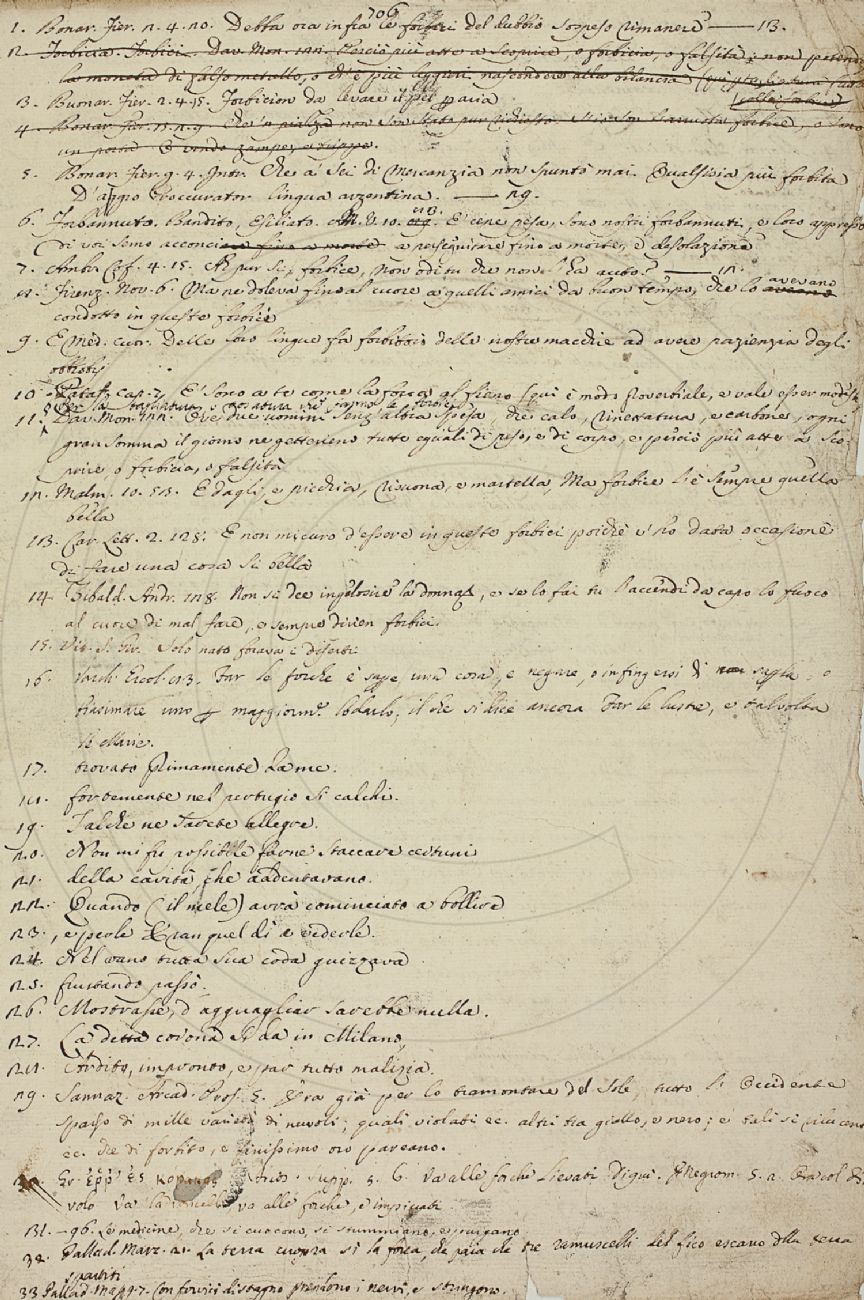 706
1. Bonar. Fier. 2. 4. 20. Debba ora infra le forbici del dubbio sospeso rimanere — 13.
2. Forbicia. Forbici. Dav. Mon. 122. Perciò più atte a scoprire, o forbicia, o falsità; non potendo
la moneta di falso metallo, o ch'è più leggieri nascondere alla bilancia
3. Buonar. Fier. 2. 4. 15. Forbicion da levare il pel
4. Bonar. Fier. non son stato pur richiesto forbice, o sono
un porco
5. Bonar. Fier. 9. 4. Intr. Che a Sei di Mercanzia non spuntò mai. Qualsisia più forbita
D'appio Proccurator lingua argentina. — 29.
6. Forbannuto. Bandito, Esiliato. M. V. 10. E' c'ene pesa, sono nostri forbannuti, e loro appresso
di voi semo acconci a perseguirare fino a morte, e desolazione
7. Ambr. Cof. 4. 15. E pur sì, forbice, Non odi tu che non l'ha auto? — 12.
Firenz. Nov. 6. Ma ne doleva fino al cuore a quelli amici da buon tempo, che lo avevano
condotto in queste forbici
9. E Med. cuor. Delle loro lingue fa forbitoio delle nostre macchie ad avere pazienzia degli
obbrobrj
10. Pataff. cap. 7. E' sono a te come la forca al fieno (qui è modo proverbiale, e vale esser
11. Dav. Mon. 122. Ove due uomini senz'altra spesa, che calo, rinettatura, e carbone, ogni
gran somma il giorno ne getterieno tutte eguali di peso, e di corpo, e perciò più atte a sco-
prire, o forbicia, o falsità
12. Malm. 10. 53. E dagli, e picchia, risuona, e martella, Ma forbice l'è sempre quella
bella
13. Car. Lett. 2. 128. E non mi curo d'essere in queste forbici poichè v'ho data occasione
di fare una cosa sì bella
14. Tibald. Andr. 128. Non si dee ingelosire la donna, e se lo fai tu l'accendi da capo lo fuoco
al cuore di mal fare, e sempre divien forbici.
15. Vit. S. Gir. Solo nato forava i diserti
16. Varch. Ercol. 93. Far le forche è sapere una cosa, e negare, o infingersi di non saperla, o
biasimare uno p maggiorm.e lodarlo, il che si dice ancora Far le lustre, e talvolta
le Marie.
17. trovato primamente da me.
fortemente nel pertugio si calchi.
19. Talchè ne sarete allegre.
20. Non mi fu possibile farne staccare certuni
21. della cavità, che addentavano.
22. Quando (il mele) avrà cominciato a bollire
23. , e peole Eran quel dì a vederle.
24. Nel vano tutta sua coda guizzava
25. frustando passò.
26. Mostrasse, d'agguagliar sarebbe nulla.
27. La detta corona si dà in Milano,
Ardito, impronto, e par tutto malizia.
29. Sannaz. Arcad. Pros. 5. Era già per lo tramontare del Sole, tutto l'Occidente
sparso di mille varietà di nuvoli; quali violati ec. altri tra giallo, e nero; e tali sì rilucenti
ec. che di forbito, e finissimo oro pareano.
va alle forche, levati di qui.
volo va alle forche, e impiccati
31. — 96. Le medicine, che si cuocono, si stummiano, e purgano
32. Pallad. Marz. 21. La terra cuopra sì la forca, che paia che tre ramuscelli del fico escano della terra
spartiti
33 Pallad. Magg. 7. Con forvici di stagno prendono i nervi, e stringono.